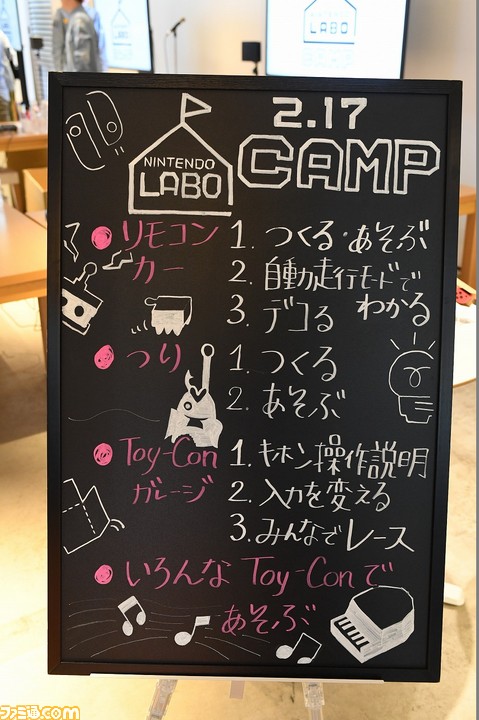 NINTENDO
LABO
2.17
NINTENDO
LABO
CAMP
リモコン
カー
1. つくる・あそぶ
2. 自動走行モードで
わかる
3. デコる
つり
1. つくる
2. あそぶ
Toy-Con
ガレージ
1. キホン操作説明
2. 入力を変える
3. みんなでレース
いろんな Toy-Conで
あそぶ
ファミ通.com